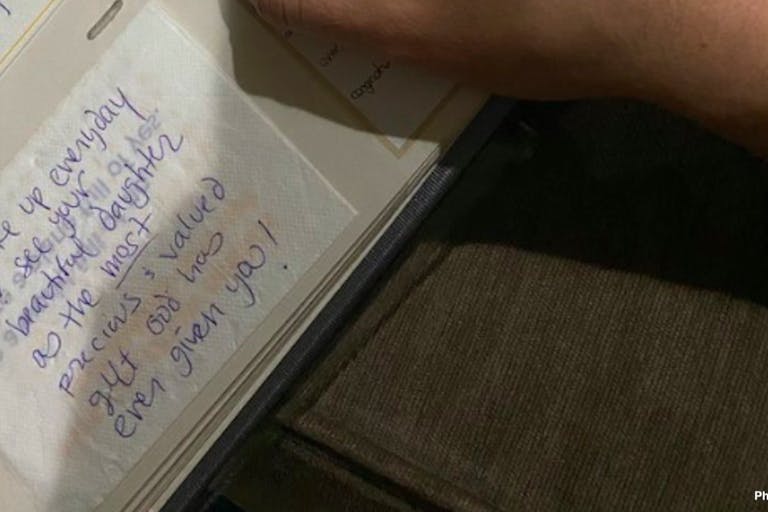 up everyday
see your
beautiful daughter
as the most
precious & valued
gift God has
ever given you!
over
congrats
Ph